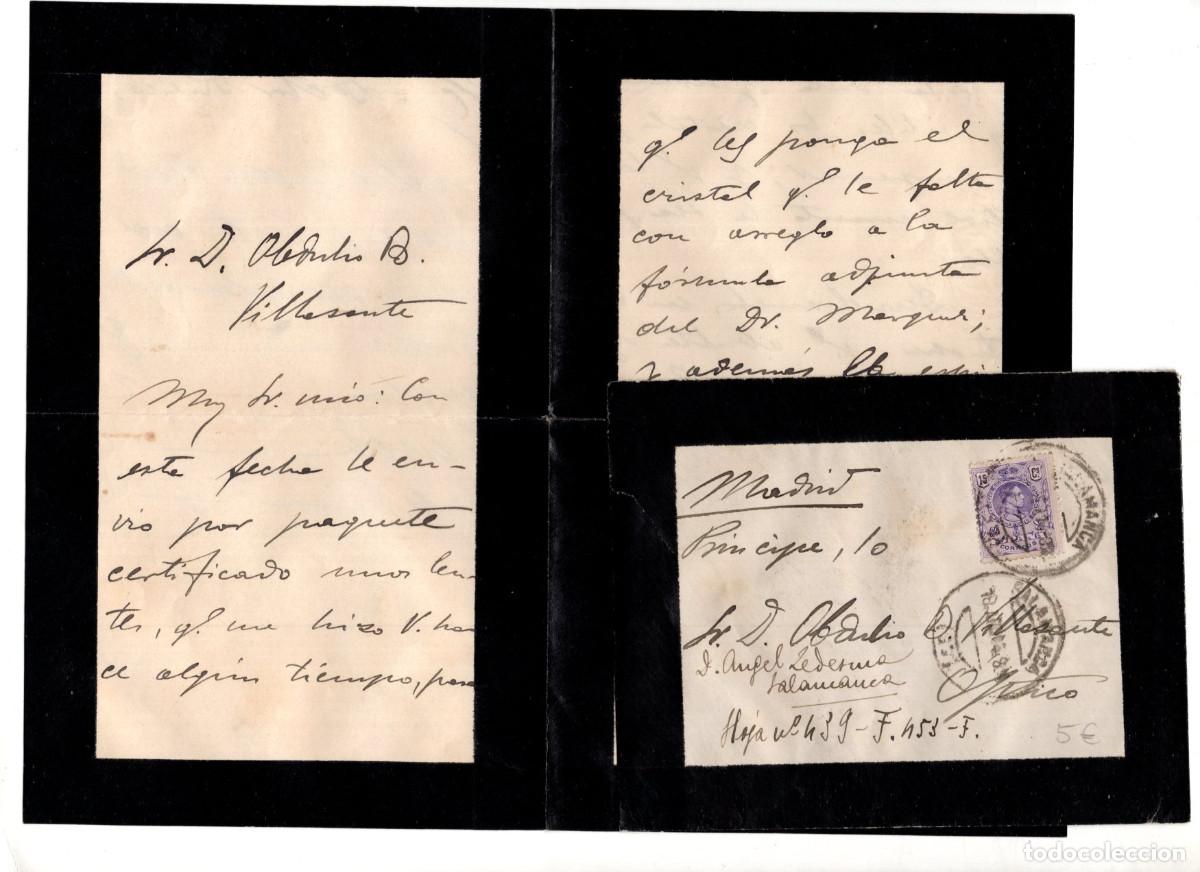 Sr. D. Obdulio B.
Villasante
Muy Sr. mío: Con
esta fecha le en-
vío por paquete
certificado unos len-
tes, q.e me hizo V. ha-
ce algún tiempo, para
q.e les ponga el
cristal q.e le falta
con arreglo a la
fórmula adjunta
del Dr. Marquez;
y además
Madrid
Príncipe, 10
Sr. D. Obdulio B. Villasante
Óptico
D. Angel Ledesma
Salamanca
Hoja nº 439-F. 453-F.
5€
SALAMANCA
SALAMANCA
CORREOS
todocoleccion